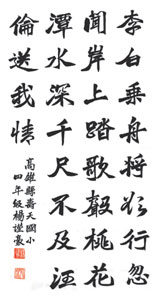 李白乘舟將欲行忽
聞岸上踏歌聲桃花
潭水深千尺不及汪
倫送我情
高雄縣壽天國小
四年級楊謹豪